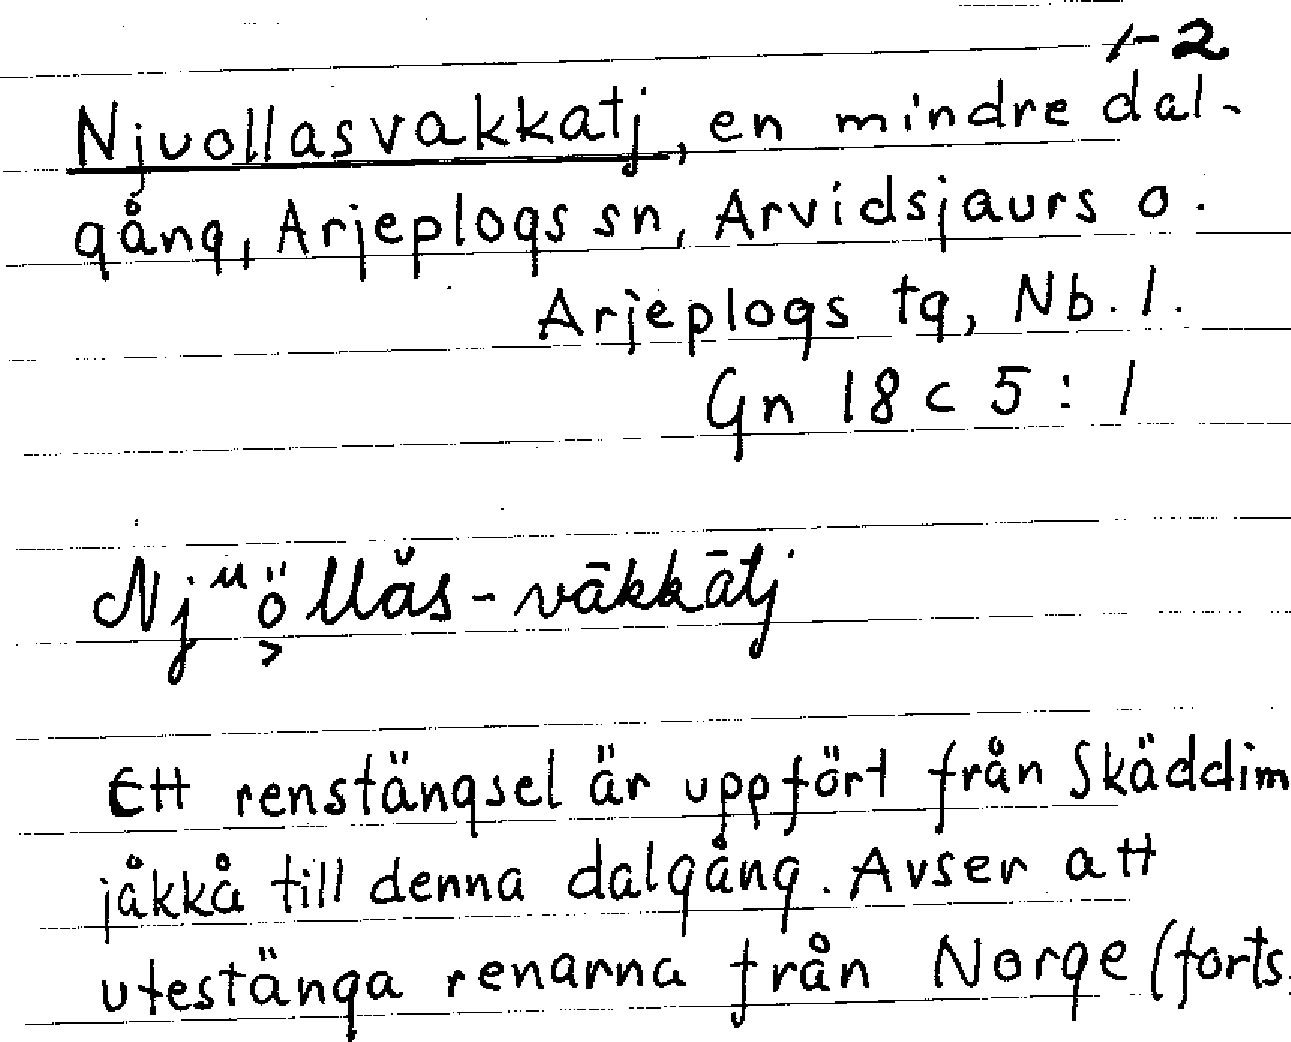 1-2
Njuollasvakkatj, en mindre dal-
gång, Arjeplogs sn, Arvidsjaurs o.
Arjeplogs tg, Nb. l.
Gn 18 c 5 : 1
Njᵘö̬llăs-vākkātj
Ett renstängsel är uppfört från Skäddim
jåkkå till denna dalgång. Avser att
utestänga renarna från Norge (forts.